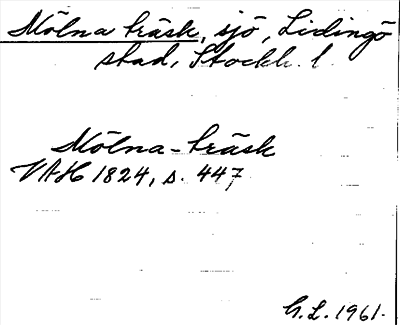 Mölna träsk, sjö, Lidingö
stad, Stockh. l.
Mölna-träsk
VAH 1824, s. 447
G.L. 1961.